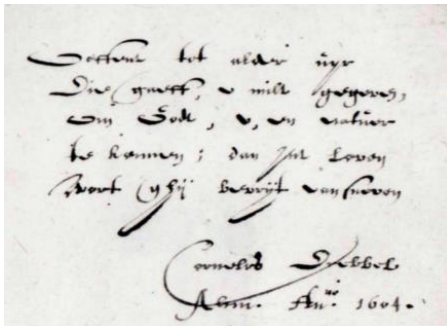 tot alder uyr
Die gaeft, u milt gegeven,
Om Godt, u, en natuer
te kennen; dan int Leven
Wort ghij bevrijt van sneven
Cornelis Drebbel
Alcm. An° 1604.